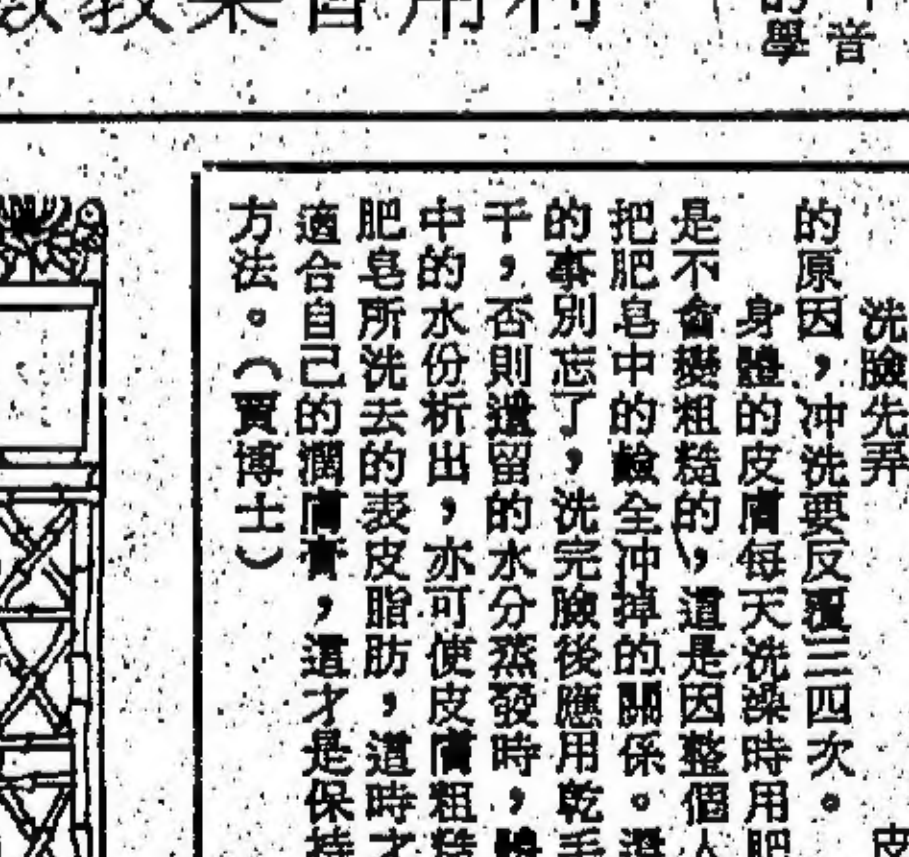 利用音樂教
音
的學
洗臉先弄
皮
的原因，冲洗要反覆三四次。
身體的皮膚每天洗澡時用肥
是不會變粗糙的，這是因整個人
把肥皂中的鹼全冲掉的關係。還
的事別忘了，洗完臉後應用乾毛
干，否則遺留的水分蒸發時，
中的水份析出，亦可使皮膚粗糙
肥皂所洗去的表皮脂肪，這時才
適合自己的潤膚膏，這才是保持
方法。（賈博士）